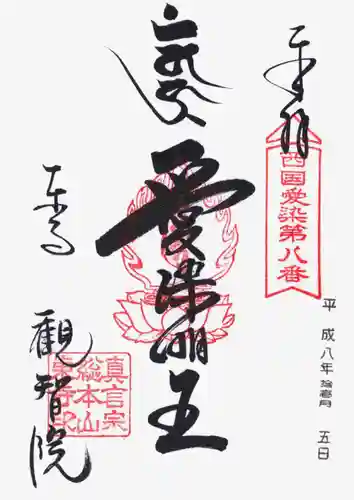 奉拝
西国愛染第八番
平成八年拾壱月五日
愛染明王
東寺
観智院
真言宗
総本山
東寺印